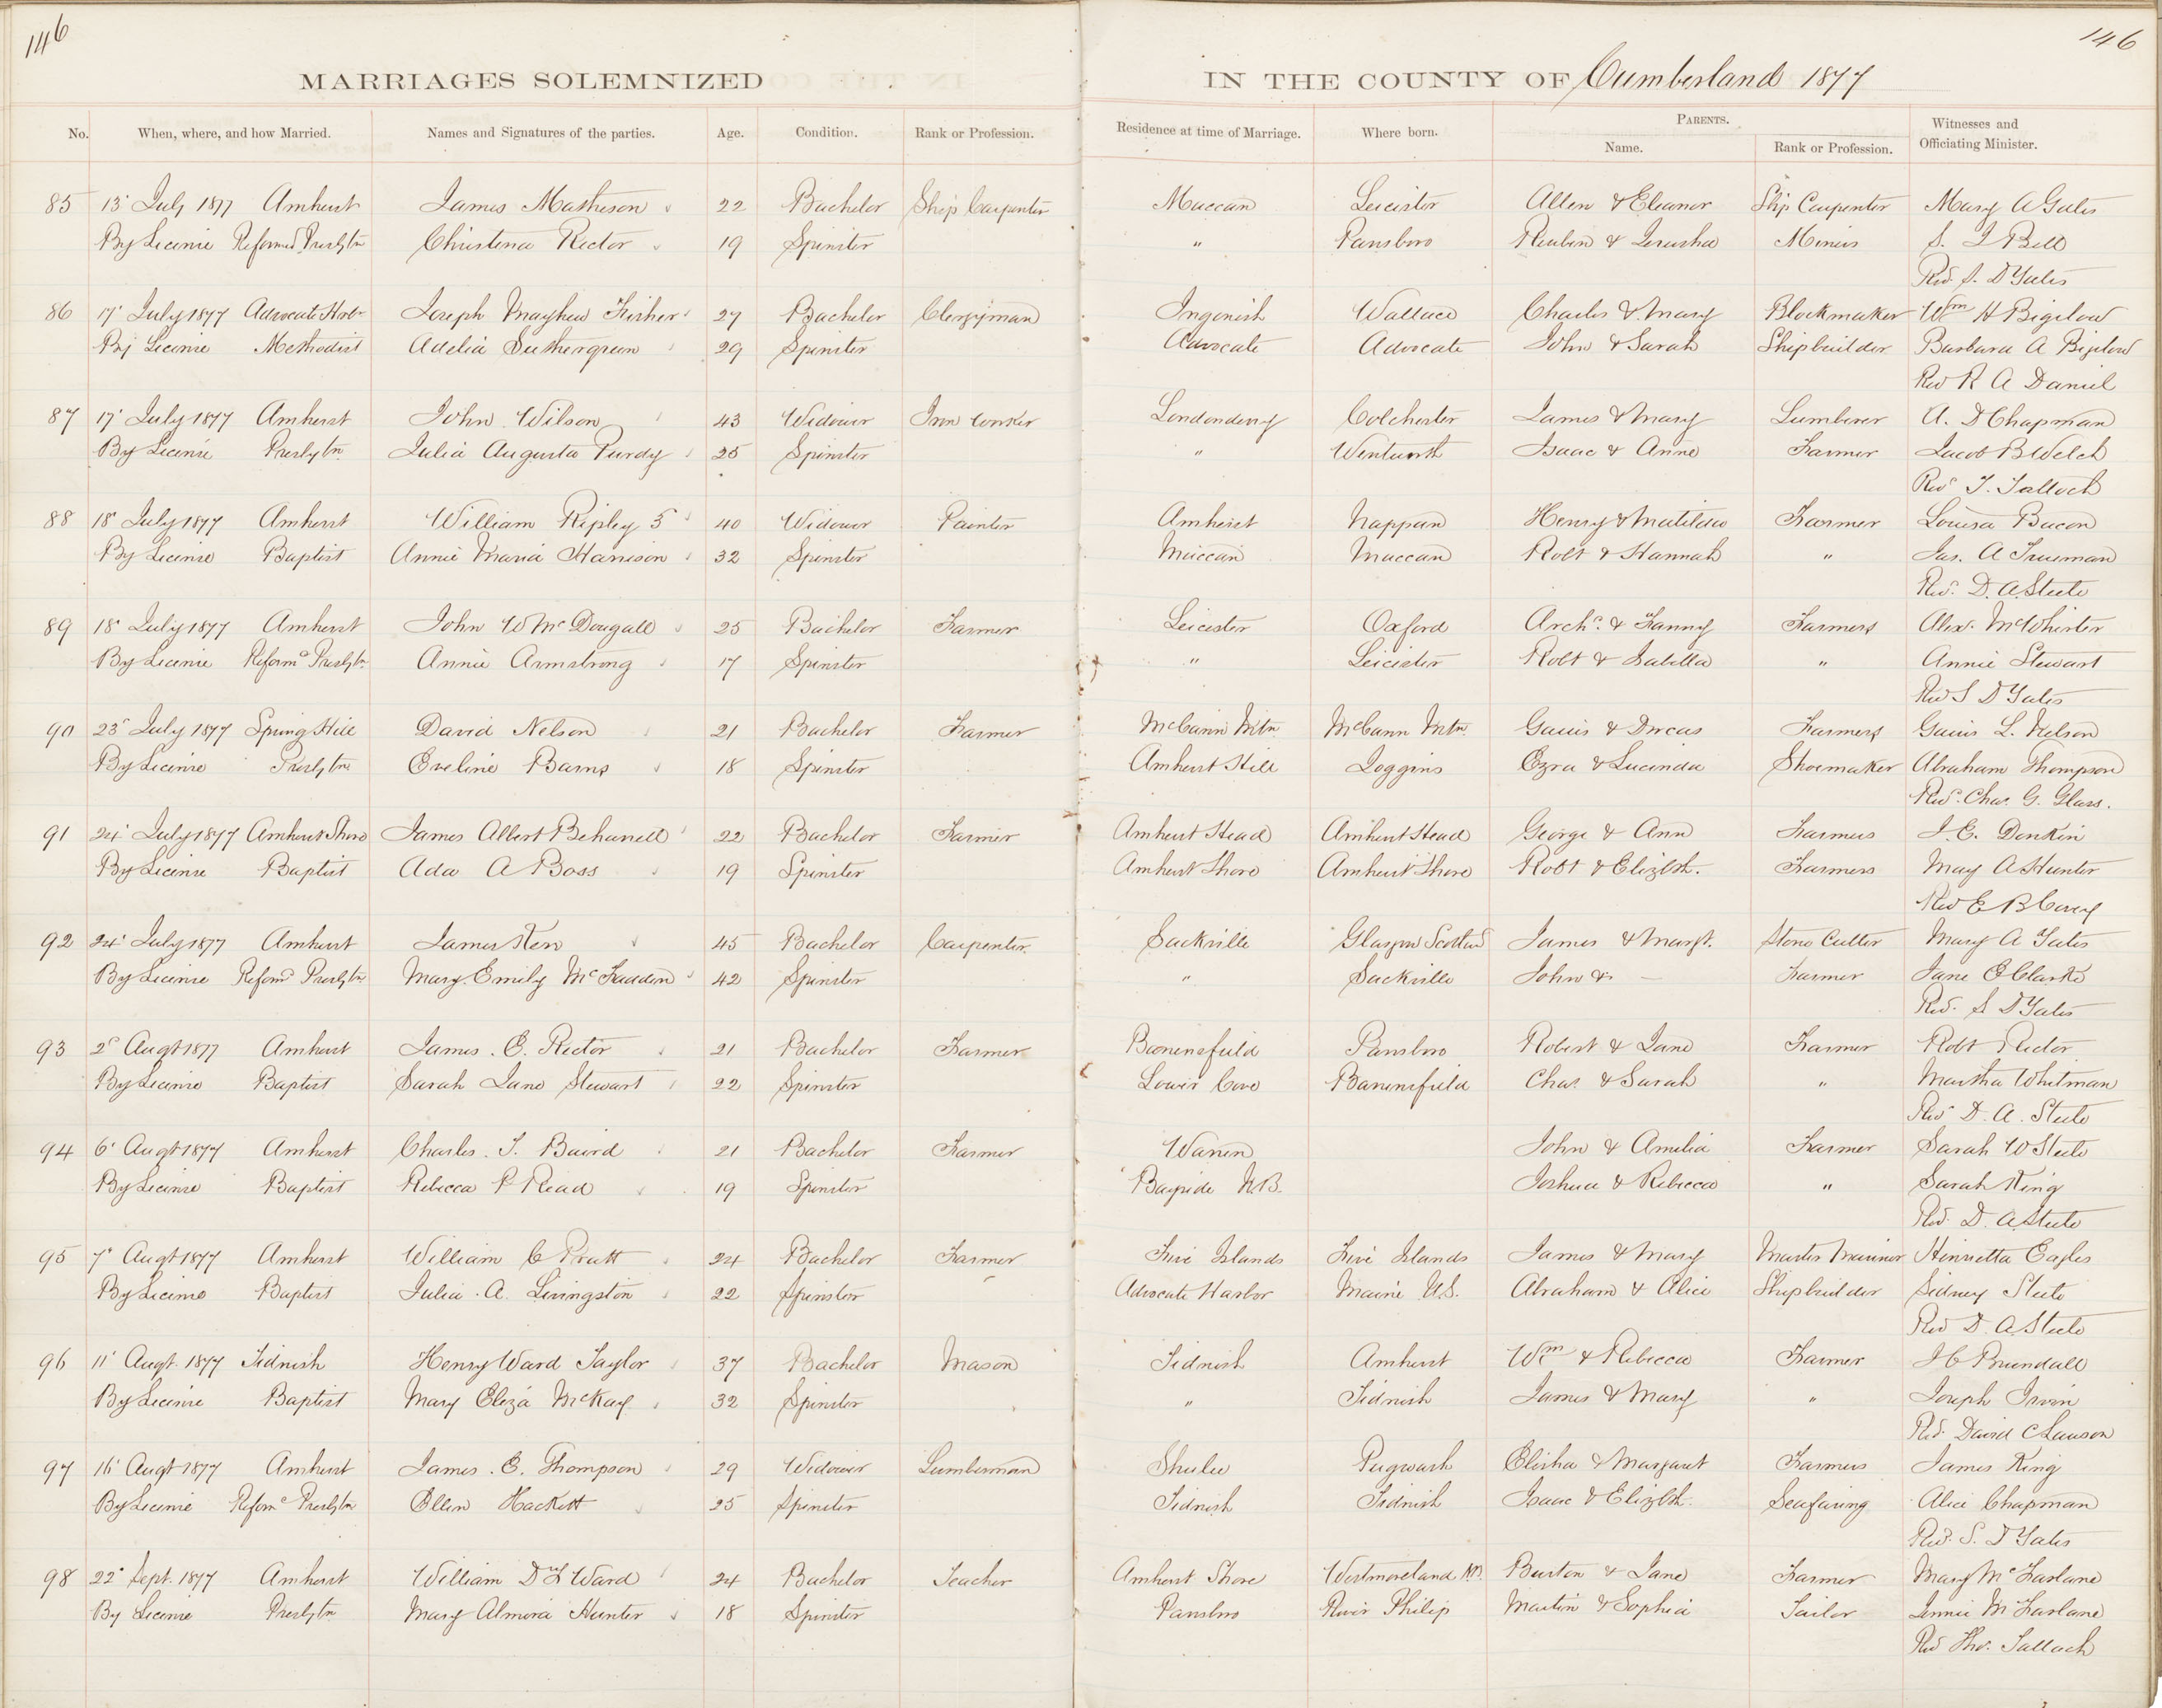 146
146
MARRIAGES SOLEMNIZED IN THE COUNTY OF Cumberland 1877
No. When, where, and how Married. Names and Signatures of the parties. Age. Condition. Rank or Profession. Residence at time of Marriage. Where born. PARENTS. Name. Rank or Profession. Witnesses and Officiating Minister.
85 13 July 1877 Amherst James Matheson 22 Bachelor Ship Carpenter Maccan Leicester Allen & Eleanor Ship Carpenter Mary A Gates
By License Reformed Presbytn Christena Rector 19 Spinster " Parrsboro Reuben & Jerusha Miners S. J Bell
Rev. S. D Yates
86 17 July 1877 Advocate Harbr Joseph Mayhew Fisher 27 Bachelor Clergyman Ingonish Wallace Charles & Mary Blockmaker Wm H Bigelow
By License Methodist Adelia Suthergreen 29 Spinster Advocate Advocate John & Sarah Shipbuilder Barbara A Bigelow
Rev R A Daniel
87 17 July 1877 Amherst John Wilson 43 Widower Iron Worker Londonderry Colchester James & Mary Lumberer A. D Chapman
By License Presbytn Julia Augusta Purdy 25 Spinster " Wentworth Isaac & Anne Farmer Jacob B Welch
Rev T. Talloch
88 18 July 1877 Amherst William Ripley 5 40 Widower Painter Amherst Nappan Henry & Matilda Farmer Louisa Bacon
By License Baptist Annie Maria Harrison 32 Spinster Maccan Maccan Robt & Hannah " Jas. A Trueman
Rev. D. A. Steele
89 18 July 1877 Amherst John W McDougall 25 Bachelor Farmer Leicester Oxford Archd. & Fanny Farmers Alexr. McWhirter
By License Reformd Presbytn Annie Armstrong 17 Spinster " Leicester Robt & Isabella " Annie Stewart
Rev S D Yates
90 23 July 1877 Spring Hill David Nelson 21 Bachelor Farmer McCann Mtn McCann Mtn. Gaius & Dorcas Farmers Gaius L. Nelson
By License Presbytn Eveline Barns 18 Spinster Amherst Hill Joggins Ezra & Lucinda Shoemaker Abraham Thompson
Rev. Chas. G. Glass.
91 24 July 1877 Amherst Shore James Albert Beharrell 22 Bachelor Farmer Amherst Head Amherst Head George & Ann Farmers J. E. Donkin
By License Baptist Ada A Boss 19 Spinster Amherst Shore Amherst Shore Robt & Elizbth. Farmers May A Hunter
Rev E B Corey
92 24 July 1877 Amherst James Kerr 45 Bachelor Carpenter. Sackville Glasgow Scotland James & Margt. Stone Cutter Mary A Yates
By License Reformd Presbytn Mary Emily McFadden 42 Spinster " Sackville John & — Farmer Jane E Clarke
Rev. S D Yates
93 2 Augt 1877 Amherst James. E. Rector 21 Bachelor Farmer Barronsfield Parrsboro Robert & Jane Farmer Robt Rector
By License Baptist Sarah Jane Stewart 22 Spinster Lower Cove Barronsfield Chas. & Sarah " Martha Whitman
Rev D. A. Steele
94 6 Augt 1877 Amherst Charles. T. Baird 21 Bachelor Farmer Warren John & Amelia Farmer Sarah W Steele
By License Baptist Rebecca P Read 19 Spinster Bayside N.B. Joshua & Rebecca " Sarah King
Rev. D. A Steele
95 7 Augt 1877 Amherst William C Pratt 24 Bachelor Farmer Five Islands Five Islands James & Mary Master Mariner Henrietta Eagles
By License Baptist Julia. A. Livingston 22 Spinster Advocate Harbor Maine U.S. Abraham & Alice Shipbuilder Sidney Steele
Rev D. A Steele
96 11 Augt. 1877 Tidnish Henry Ward Taylor 37 Bachelor Mason Tidnish Amherst Wm & Rebecca Farmer J C Brundall
By License Baptist Mary Eliza McKay 32 Spinster " Tidnish James & Mary " Joseph Irvin
Rev. David C Lawson
97 16 Augt 1877 Amherst James. E. Thompson 29 Widower Lumberman Shulee Pugwash Elisha & Margaret Farmers James King
By License Reformd Presbytn Ellen Hackett 25 Spinster Tidnish Tidnish Isaac & Elizbth. Seafaring Alice Chapman
Rev. S. D Yates
98 22 Sept. 1877 Amherst William D L Ward 24 Bachelor Teacher Amherst Shore Westmoreland N.B. Burton & Jane Farmer Mary McFarlane
By License Presbytn Mary Almira Hunter 18 Spinster Parrsboro River Philip Martin & Sophia Tailor Jennie McFarlane
Rev Thos. Talloch